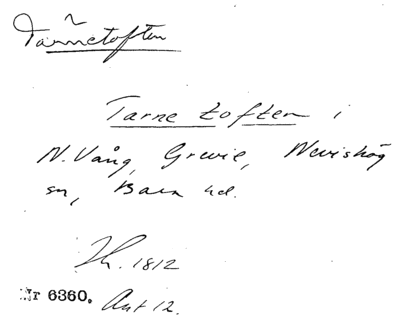 Tärnetoften
Tarne toften i
N. Vång, Grevie, Nevishög
sn, Bara hd.
Lh. 1812
Nr 6360. Akt 12.